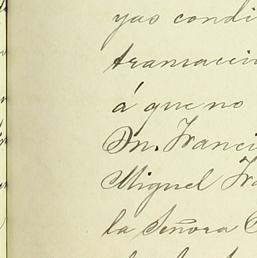 yas condi
transacci
á que no
Dn. Franci
Miguel Fra
la Señora